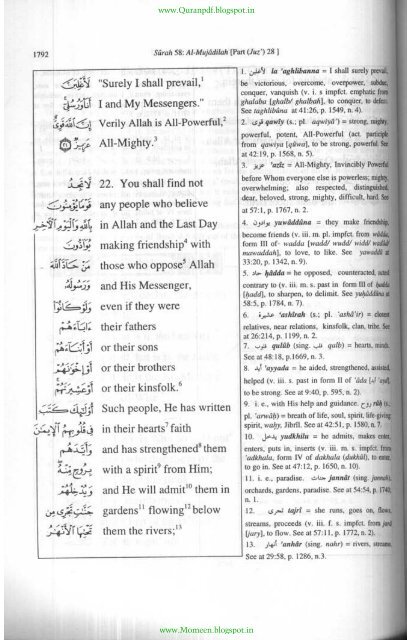 www.Quranpdf.blogspot.in
1792
Sûrah 58: Al-Mujâdilah [Part (Juz') 28 ]
لَأَغْلِبَنَّ
"Surely I shall prevail,¹
أَنَا۠ وَرُسُلِىٓ
I and My Messengers."
إِنَّ ٱللَّهَ قَوِىٌّ
Verily Allah is All-Powerful,²
عَزِيزٌ ﴿٢١﴾
All-Mighty.³
لَّا تَجِدُ
22. You shall find not
قَوْمًا يُؤْمِنُونَ
any people who believe
بِٱللَّهِ وَٱلْيَوْمِ ٱلْـَٔاخِرِ
in Allah and the Last Day
يُوَآدُّونَ
making friendship⁴ with
مَنْ حَآدَّ ٱللَّهَ
those who oppose⁵ Allah
وَرَسُولَهُۥ
and His Messenger,
وَلَوْ كَانُوٓا۟
even if they were
ءَابَآءَهُمْ
their fathers
أَوْ أَبْنَآءَهُمْ
or their sons
أَوْ إِخْوَٰنَهُمْ
or their brothers
أَوْ عَشِيرَتَهُمْ
or their kinsfolk.⁶
أُو۟لَـٰٓئِكَ كَتَبَ
Such people, He has written
فِى قُلُوبِهِمُ ٱلْإِيمَـٰنَ
in their hearts⁷ faith
وَأَيَّدَهُم
and has strengthened⁸ them
بِرُوحٍ مِّنْهُ
with a spirit⁹ from Him;
وَيُدْخِلُهُمْ
and He will admit¹⁰ them in
جَنَّـٰتٍ تَجْرِى مِن
gardens¹¹ flowing¹² below
تَحْتِهَا ٱلْأَنْهَـٰرُ
them the rivers;¹³
1. لأغلبن la 'aghlibanna = I shall surely prevail,
be victorious, overcome, overpower, subdue,
conquer, vanquish (v. i. s impfct. emphatic from
ghalaba [ghalb/ ghalbah], to conquer, to defeat.
See taghlibûna at 41:26, p. 1549, n. 4).
2. قوي qawîy (s.; pl. 'aqwiyâ') = strong, mighty,
powerful, potent, All-Powerful (act. participle
from qawiya [qûwa], to be strong, powerful. See
at 42:19, p. 1568, n. 5).
3. عزيز 'azîz = All-Mighty, Invincibly Powerful
before Whom everyone else is powerless; mighty,
overwhelming; also respected, distinguished,
dear, beloved, strong, mighty, difficult, hard. See
at 57:1, p. 1767, n. 2.
4. يوادون yuwâddûna = they make friendship,
become friends (v. iii. m. pl. impfct. from wâdda,
form III of wadda [wadd/ wudd/ widd/ wadâd/
mawaddah], to love, to like. See yawaddû at
33:20, p. 1342, n. 9).
5. حاد hâdda = he opposed, counteracted, acted
contrary to (v. iii. m. s. past in form III of hadda
[hadd], to sharpen, to delimit. See yuhâddûna at
58:5, p. 1784, n. 7).
6. عشيرة 'ashîrah (s.; pl. 'ashâ'ir) = closest
relatives, near relations, kinsfolk, clan, tribe. See
at 26:214, p. 1199, n. 2.
7. قلوب qulûb (sing. قلب qalb) = hearts, minds.
See at 48:18, p.1669, n. 3.
8. أيد 'ayyada = he aided, strengthened, assisted,
helped (v. iii. s. past in form II of 'âda [أيد 'ayd],
to be strong. See at 9:40, p. 595, n. 2).
9. i. e., with His help and guidance. روح rûh (s.;
pl. 'arwâh) = breath of life, soul, spirit, life-giving
spirit, wahy, Jibrîl. See at 42:51, p. 1580, n. 7.
10. يدخل yudkhilu = he admits, makes enter,
enters, puts in, inserts (v. iii. m. s. impfct. from
'adkhala, form IV of dakhala (dukhûl), to enter,
to go in. See at 47:12, p. 1650, n. 10).
11. i. e., paradise. جنات jannât (sing. jannah),
orchards, gardens, paradise. See at 54:54, p. 1740,
n. 1.
12. تجري tajrî = she runs, goes on, flows,
streams, proceeds (v. iii. f. s. impfct. from jarâ
[jary], to flow. See at 57:11, p. 1772, n. 2).
13. أنهار 'anhâr (sing. nahr) = rivers, streams.
See at 29:58, p. 1286, n.3.
www.Momeen.blogspot.in